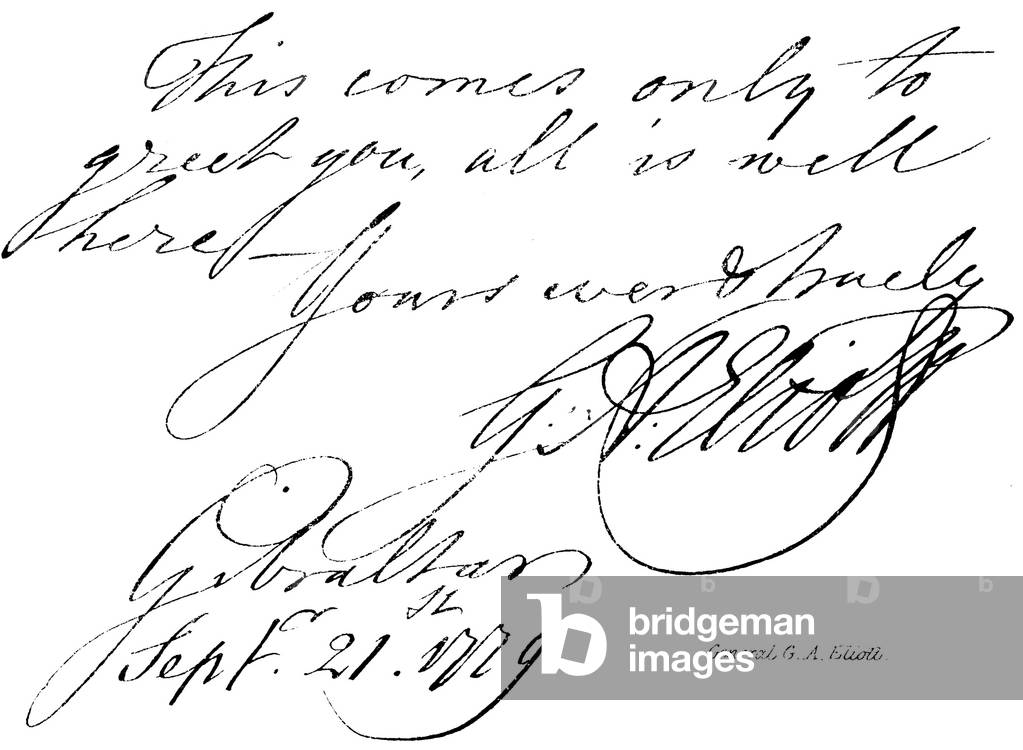 This comes only to
greet you, all is well
here —
Yours ever & truely
G: A: Eliott
Gibraltar
Septr. 21st. 1779
General G. A. Eliott.
bridgeman
images
b b b b